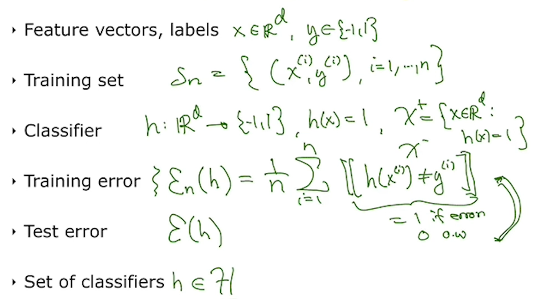 ‣ Feature vectors, labels x ∈ ℝᵈ, y ∈ {-1,1}
‣ Training set Sₙ = { (x⁽ⁱ⁾, y⁽ⁱ⁾), i=1,...,n }
‣ Classifier h: ℝᵈ → {-1,1}, h(x)=1, χ⁺ = {x∈ℝᵈ:
h(x)=1}
χ⁻
‣ Training error { Ɛₙ(h) = 1/n ∑ᵢ₌₁ⁿ [[ h(x⁽ⁱ⁾) ≠ y⁽ⁱ⁾ ]]
= 1 if error
0 o.w
‣ Test error Ɛ(h)
‣ Set of classifiers h ∈ H